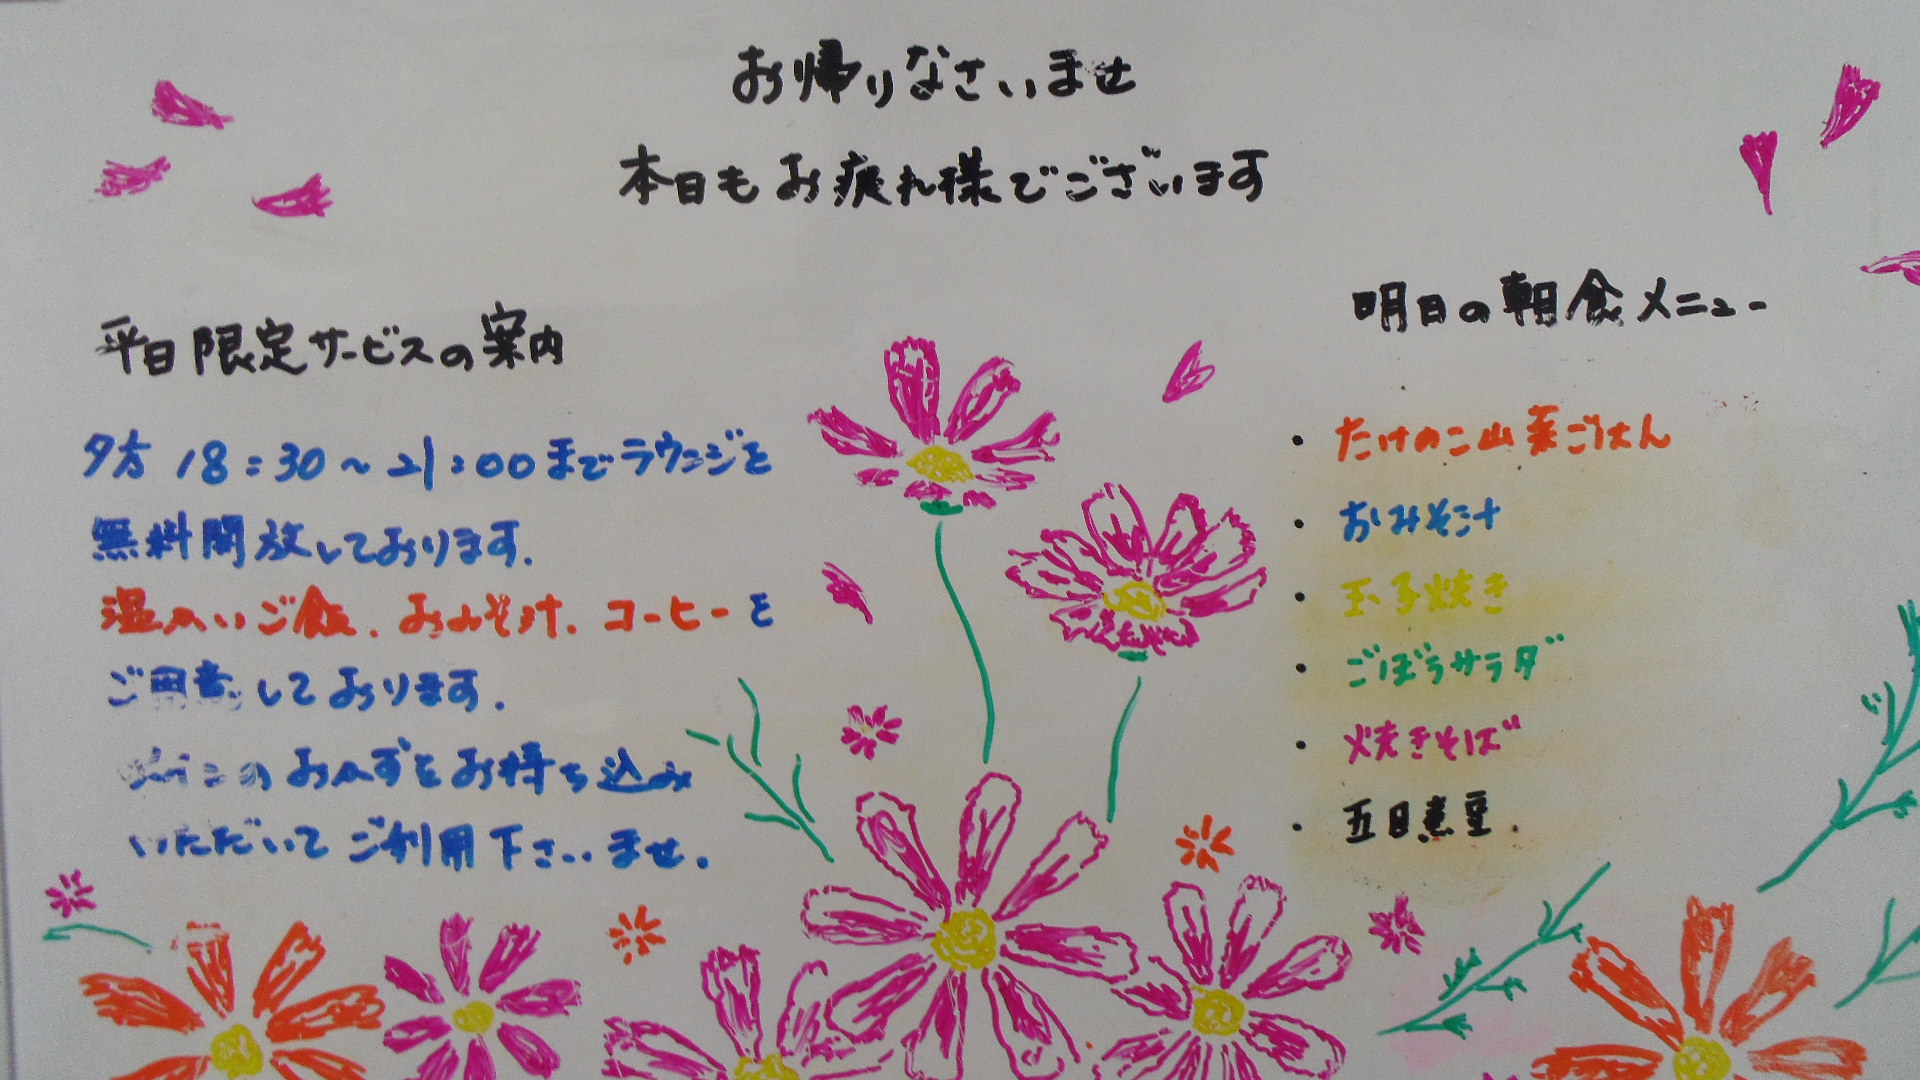 お帰りなさいませ
本日もお疲れ様でございます
平日限定サービスの案内
夕方18:30～21:00までラウンジを
無料開放しております.
温かいご飯、おみそ汁、コーヒーを
ご用意しております.
のおかずをお持ち込み
いただいてご利用下さいませ.
明日の朝食メニュー
・たけのこ山菜ごはん
・おみそ汁
・玉子焼き
・ごぼうサラダ
・焼きそば
・五目煮豆.